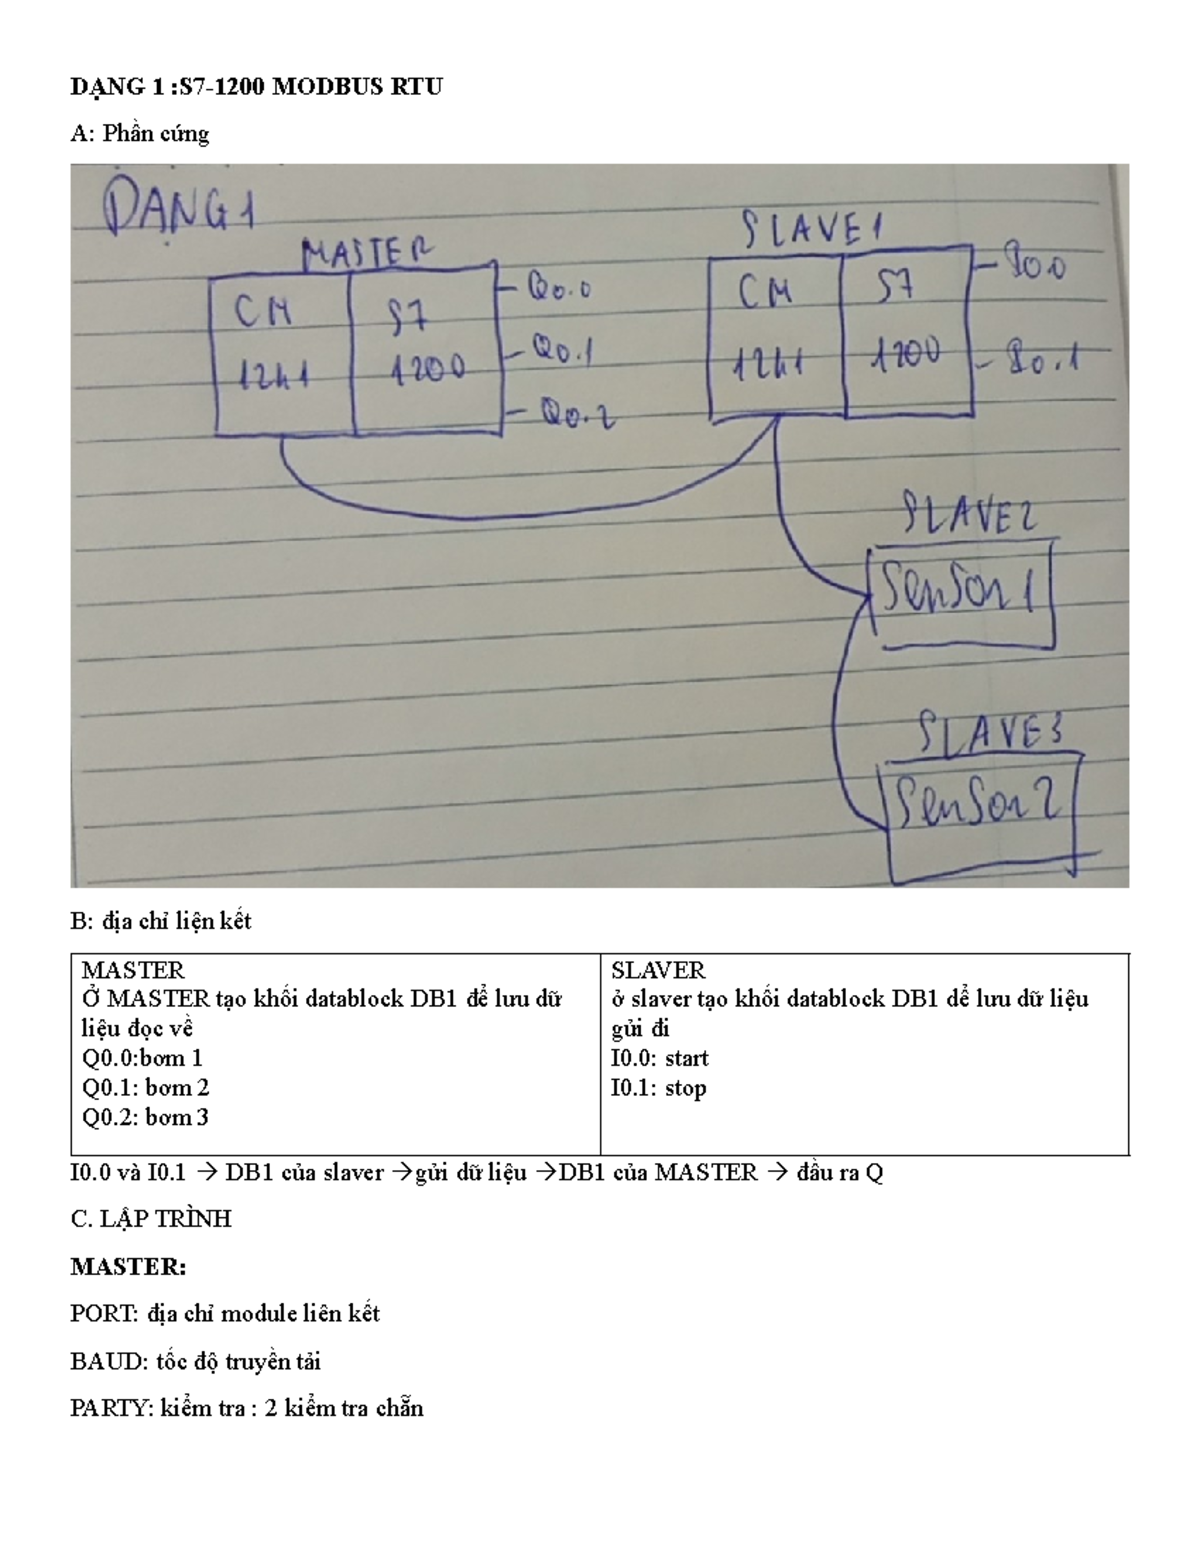 DẠNG 1 :S7-1200 MODBUS RTU
A: Phần cứng
DẠNG 1
MASTER
SLAVE1
CM
1241
S7
1200
Q0.0
Q0.1
Q0.2
CM
1241
S7
1200
I0.0
I0.1
SLAVE2
SenSor 1
SLAVE3
SenSor 2
B: địa chỉ liện kết
MASTER
Ở MASTER tạo khối datablock DB1 để lưu dữ
liệu đọc về
Q0.0:bơm 1
Q0.1: bơm 2
Q0.2: bơm 3
SLAVER
ở slaver tạo khối datablock DB1 dể lưu dữ liệu
gửi đi
I0.0: start
I0.1: stop
I0.0 và I0.1 → DB1 của slaver →gửi dữ liệu →DB1 của MASTER → đầu ra Q
C. LẬP TRÌNH
MASTER:
PORT: địa chỉ module liên kết
BAUD: tốc độ truyền tải
PARTY: kiểm tra : 2 kiểm tra chẵn